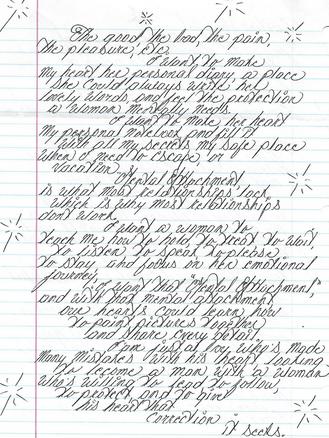 The good the bad, the pain,
the pleasure, etc.
I want to make
My heart her personal diary, a place
she could always write her
lovely words, and feel the protection
a woman mentally needs.
I want to make her heart
My personal notebook and fill it
with all my secrets my safe place
when I need to escape, or
vacation.
"Mental Attachment"
is what most relationships lack,
which is why most relationships
dont work.
I want a woman to
teach me how to hold, to treat to wait,
to listen, to speak, to please
to stay and focus on her emotional
journey.
I want that "Mental Attachment,"
and with that mental attachment
our hearts could learn how
to paint pictures together,
and share every detail.
I am just a boy who's made
Many mistakes with his heart, looking
to become a man with a woman
Who's willing to lead to follow,
to protect, and to give
his heart that
correction
it seeks.